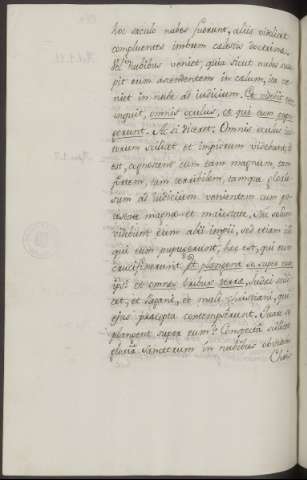 hoc sæculo nubes fuerunt, aliis videlicet
compluentes imbrem cælestis doctrinæ.
nubibus veniet, quia sicut nubes susce
pit eum ascendentem in cælum, ita ve
niet in nube ad iudicium. Et videbit eum
inquit, omnis oculus, et qui eum pupu
gerunt. Ac si diceret: Omnis oculus ius
torum scilicet et impiorum videbunt, id
est, cognoscent eum tam magnum, tam
fortem, tam terribilem, tamque glorio
sum ad iudicium venientem cum po
testate magna et maiestate. Nec solum
videbunt eum alii impii, sed etiam ii
qui eum pupugerunt, hoc est, qui eum
crucifixerunt. Et plangent se super eum
ipsi et omnes tribus terræ, Iudæi scili
cet, et Pagani, et mali Christiani, qui
ejus præcepta contempserunt. Quare se
plangent super eum? Conspecta scilicet
gloria Sanctorum in nubibus obviam
Chris